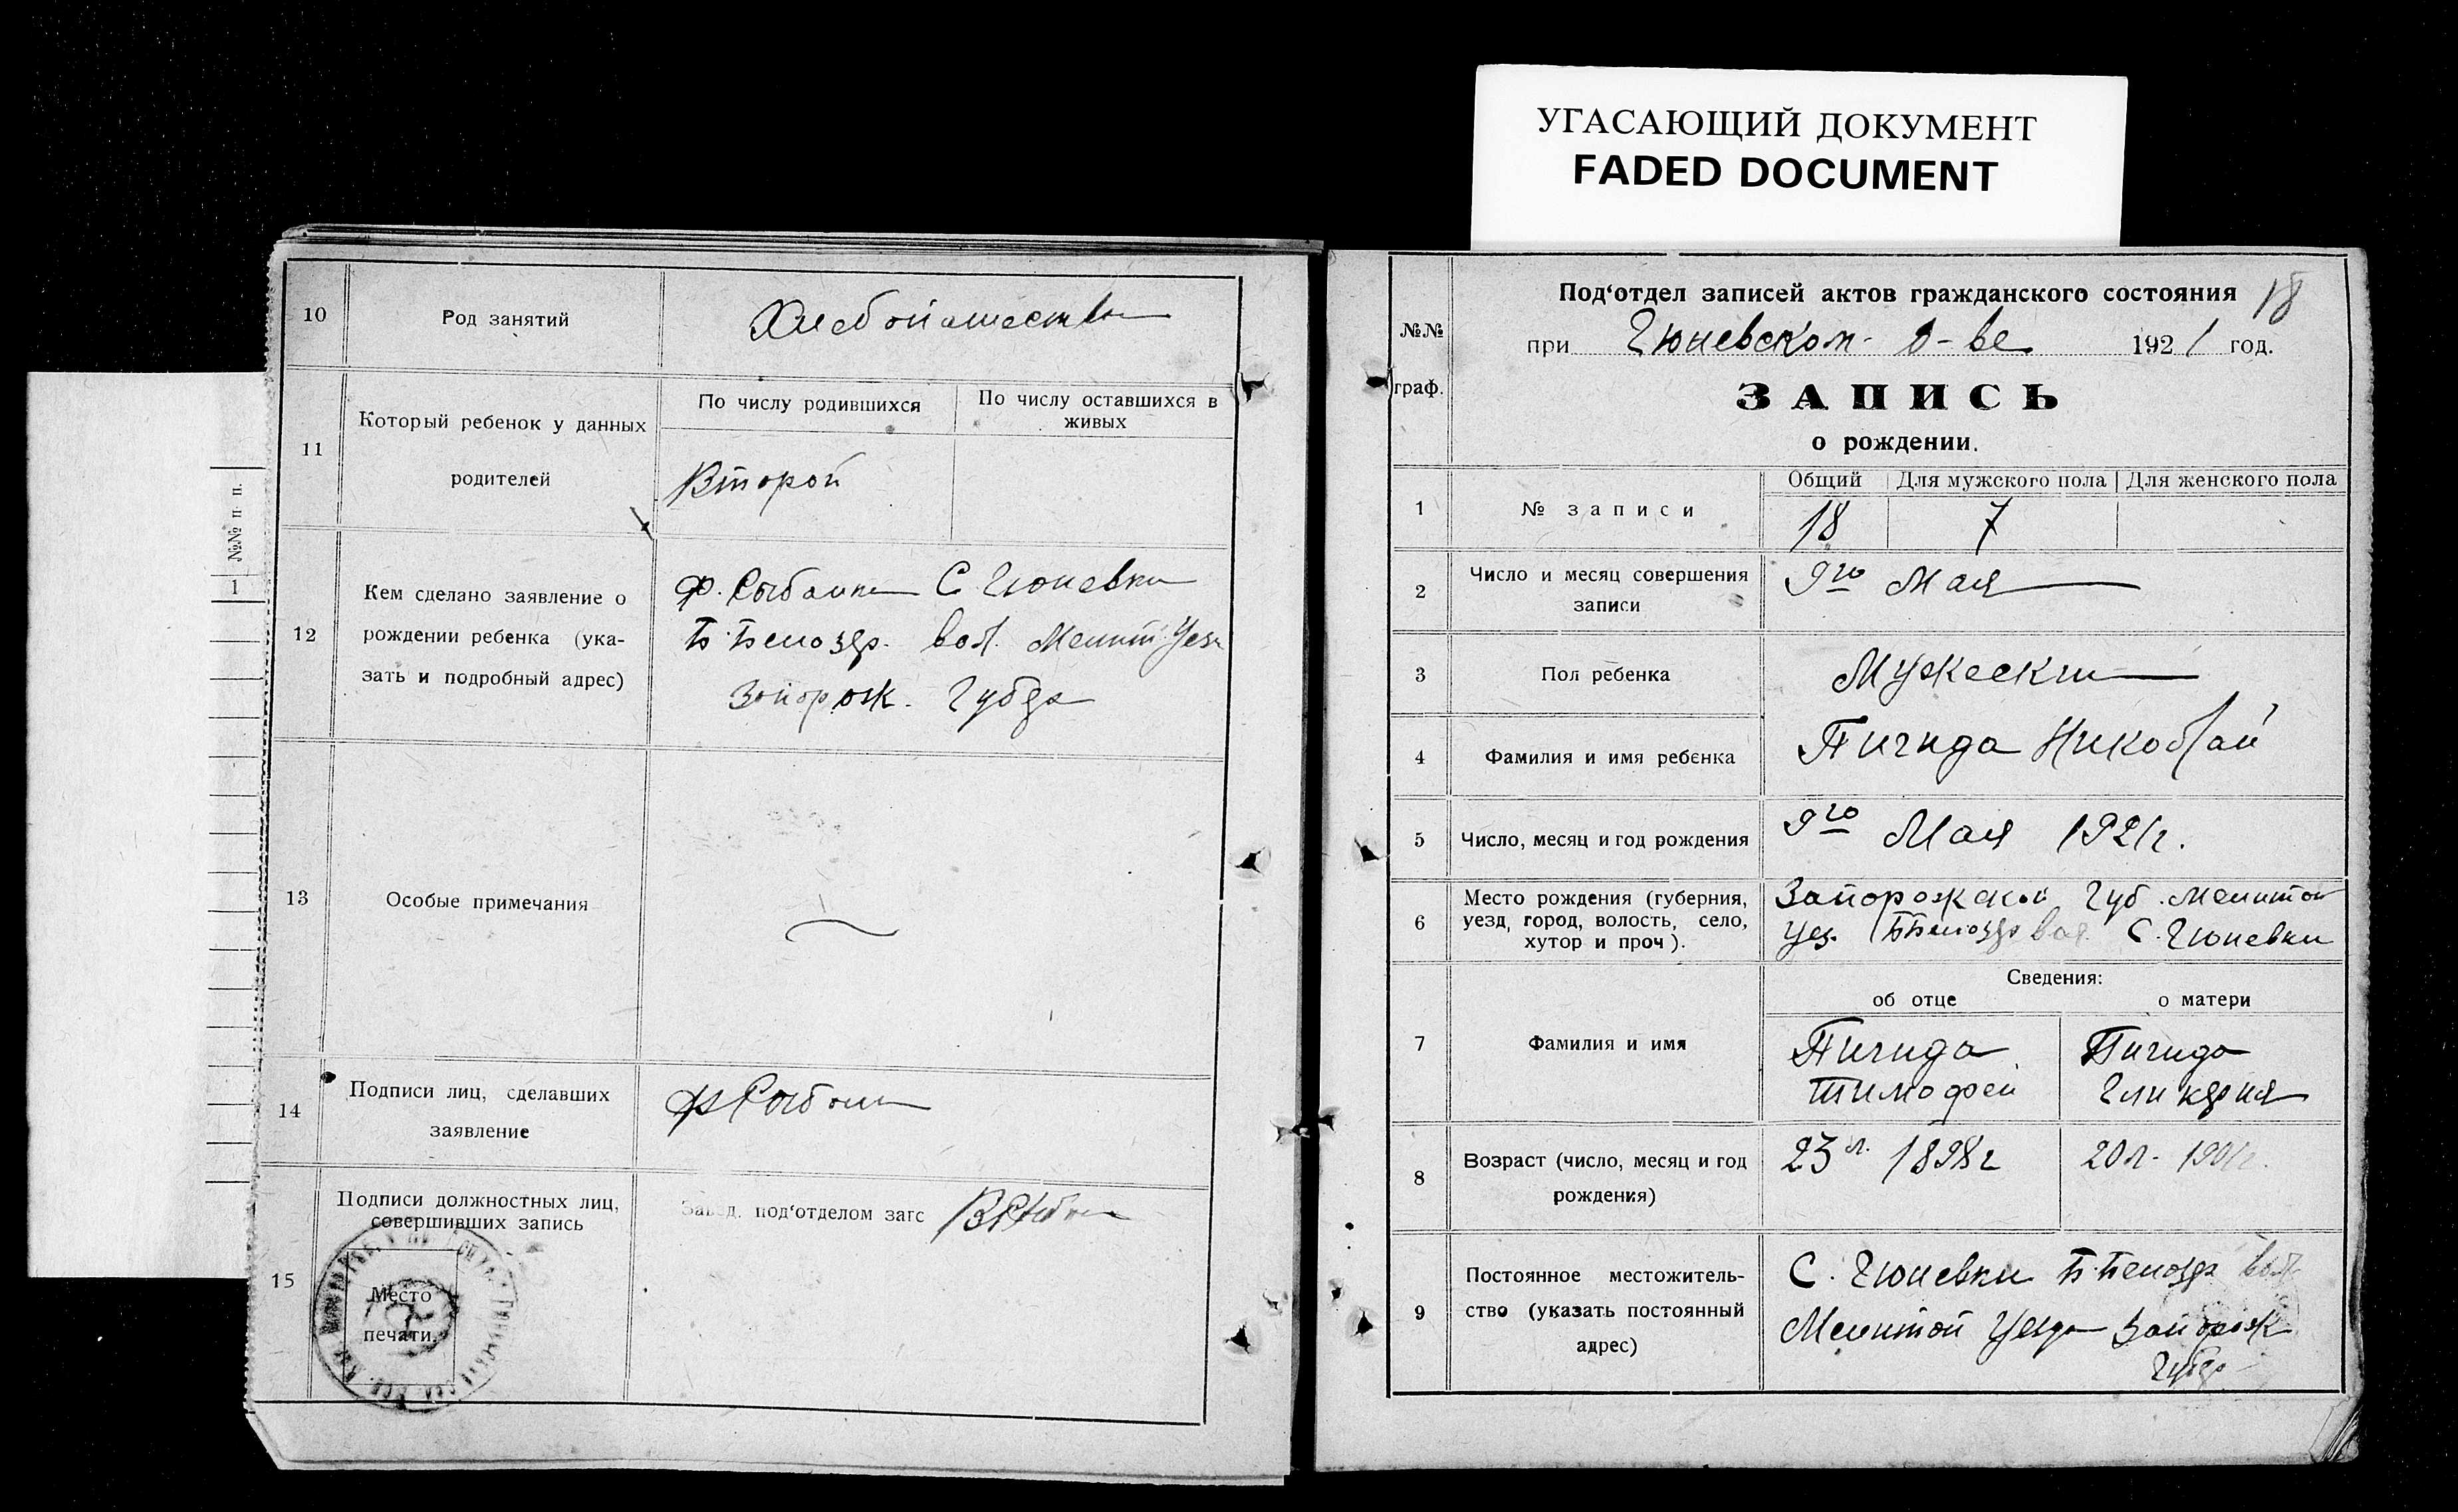 УГАСАЮЩИЙ ДОКУМЕНТ
FADED DOCUMENT
№№ п. п.
1
10
Род занятий
Хлебопашество
11
Который ребенок у данных
родителей
По числу родившихся
По числу оставшихся в
живых
Второй
12
Кем сделано заявление о
рождении ребенка (ука-
зать и подробный адрес)
Ф. С. Гюневки
Б-Белозер. вол. Мелит. Уезд
Запорож. Губер
13
Особые примечания
14
Подписи лиц, сделавших
заявление
15
Подписи должностных лиц,
совершивших запись
Место
печати
Завед. под‘отделом загс
№№
граф.
Под‘отдел записей актов гражданского состояния
18
при Гюневском о-ве 1921 год.
ЗАПИСЬ
о рождении.
1
№ записи
Общий
Для мужского пола
Для женского пола
18
7
2
Число и месяц совершения
записи
9го Мая
3
Пол ребенка
Мужеский
4
Фамилия и имя ребенка
Пигида Николай
5
Число, месяц и год рождения
9го Мая 1921г.
6
Место рождения (губерния,
уезд, город, волость, село,
хутор и проч).
Запорожской Губ. Мелитоп
Уез. ББелозер вол. С. Гюневки
Сведения:
об отце
о матери
7
Фамилия и имя
Пигида
Тимофей
Пигида
Гликерия
8
Возраст (число, месяц и год
рождения)
23 л. 1898г
20 л. 1901г.
9
Постоянное местожитель-
ство (указать постоянный
адрес)
С. Гюневки Б-Белозер вол.
Мелитоп Уезда Запорож
Губер